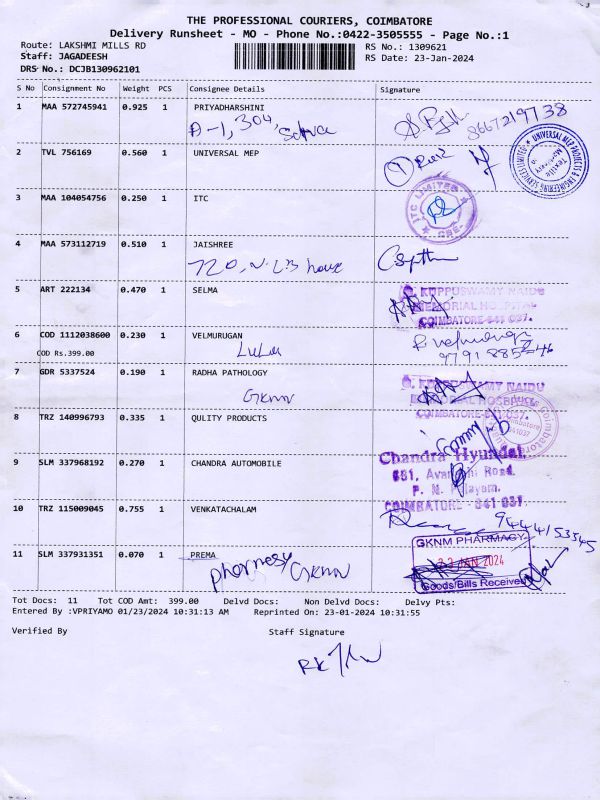 THE PROFESSIONAL COURIERS, COIMBATORE
Delivery Runsheet - MO - Phone No.:0422-3505555 - Page No.:1
Route: LAKSHMI MILLS RD
RS No.: 1309621
Staff: JAGADEESH
RS Date: 23-Jan-2024
DRS No.: DCJB130962101
S No Consignment No Weight PCS Consignee Details Signature
1 MAA 572745941 0.925 1 PRIYADHARSHINI
A-1, 304, 8667219738
2 TVL 756169 0.560 1 UNIVERSAL MEP
UNIVERSAL MEP PROJECTS & ENGINEERING SERVICES LIMITED
3 MAA 104054756 0.250 1 ITC
ITC LIMITED
CBE
4 MAA 573112719 0.510 1 JAISHREE
720, N.L.B house
5 ART 222134 0.470 1 SELMA
G. KUPPUSWAMY NAIDU
MEMORIAL HOSPITAL
COIMBATORE-641 037.
6 COD 1112038600 0.230 1 VELMURUGAN
COD Rs.399.00 LuLu
7 GDR 5337524 0.190 1 RADHA PATHOLOGY
GKNM
G. KUPPUSWAMY NAIDU
MEMORIAL HOSPITAL
COIMBATORE-641 037.
8 TRZ 140996793 0.335 1 QULITY PRODUCTS
9 SLM 337968192 0.270 1 CHANDRA AUTOMOBILE
Chandra Hyundai,
681, Avanashi Road.
P. N. Palayam.
COIMBATORE - 641 037.
10 TRZ 115009045 0.755 1 VENKATACHALAM
9444153545
11 SLM 337931351 0.070 1 PREMA
pharmacy GKNM
GKNM PHARMACY
23 JAN 2024
Goods/Bills Received
Tot Docs: 11 Tot COD Amt: 399.00 Delvd Docs: Non Delvd Docs: Delvy Pts:
Entered By :VPRIYAMO 01/23/2024 10:31:13 AM Reprinted On: 23-01-2024 10:31:55
Verified By Staff Signature